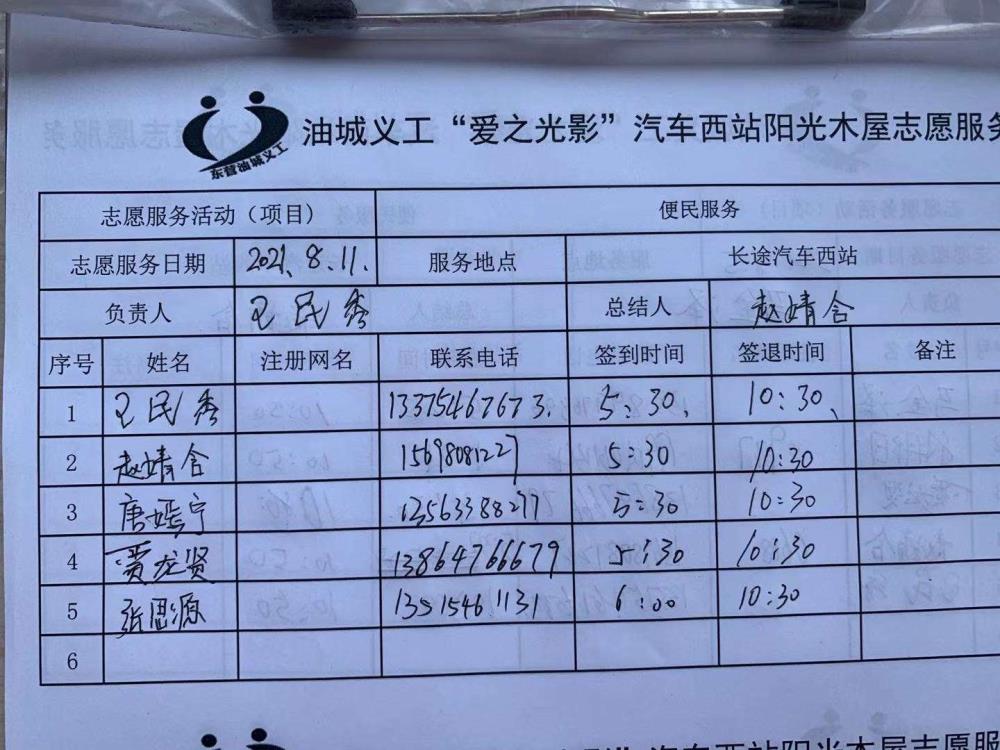 东营油城义工
油城义工“爱之光影”汽车西站阳光木屋志愿服务
志愿服务活动（项目） 便民服务
志愿服务日期 2021.8.11. 服务地点 长途汽车西站
负责人 王民秀 总结人 赵靖含
序号 姓名 注册网名 联系电话 签到时间 签退时间 备注
1 王民秀 13375467673. 5:30、 10:30、
2 赵靖含 15698081227 5:30 10:30
3 唐嫣宁 13563388277 5:30 10:30
4 贾龙贤 13864766679 5:30 10:30
5 张恩源 13515461131 6:00 10:30
6
汽车西站阳光木屋志愿服